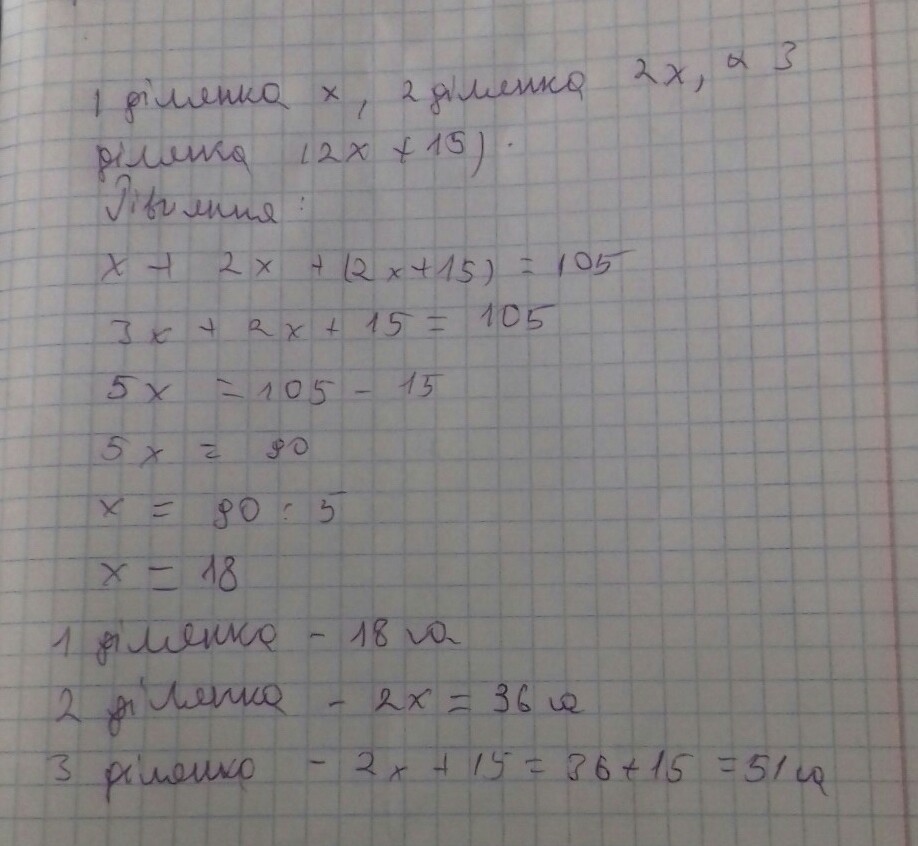 1 ділянка x, 2 ділянка 2x, а 3
ділянка (2x + 15).
Рівняння:
x + 2x + (2x+15) = 105
3x + 2x + 15 = 105
5x = 105 - 15
5x = 90
x = 90 : 5
x = 18
1 ділянка - 18 га
2 ділянка - 2x = 36 га
3 ділянка - 2x + 15 = 36+15 = 51 га